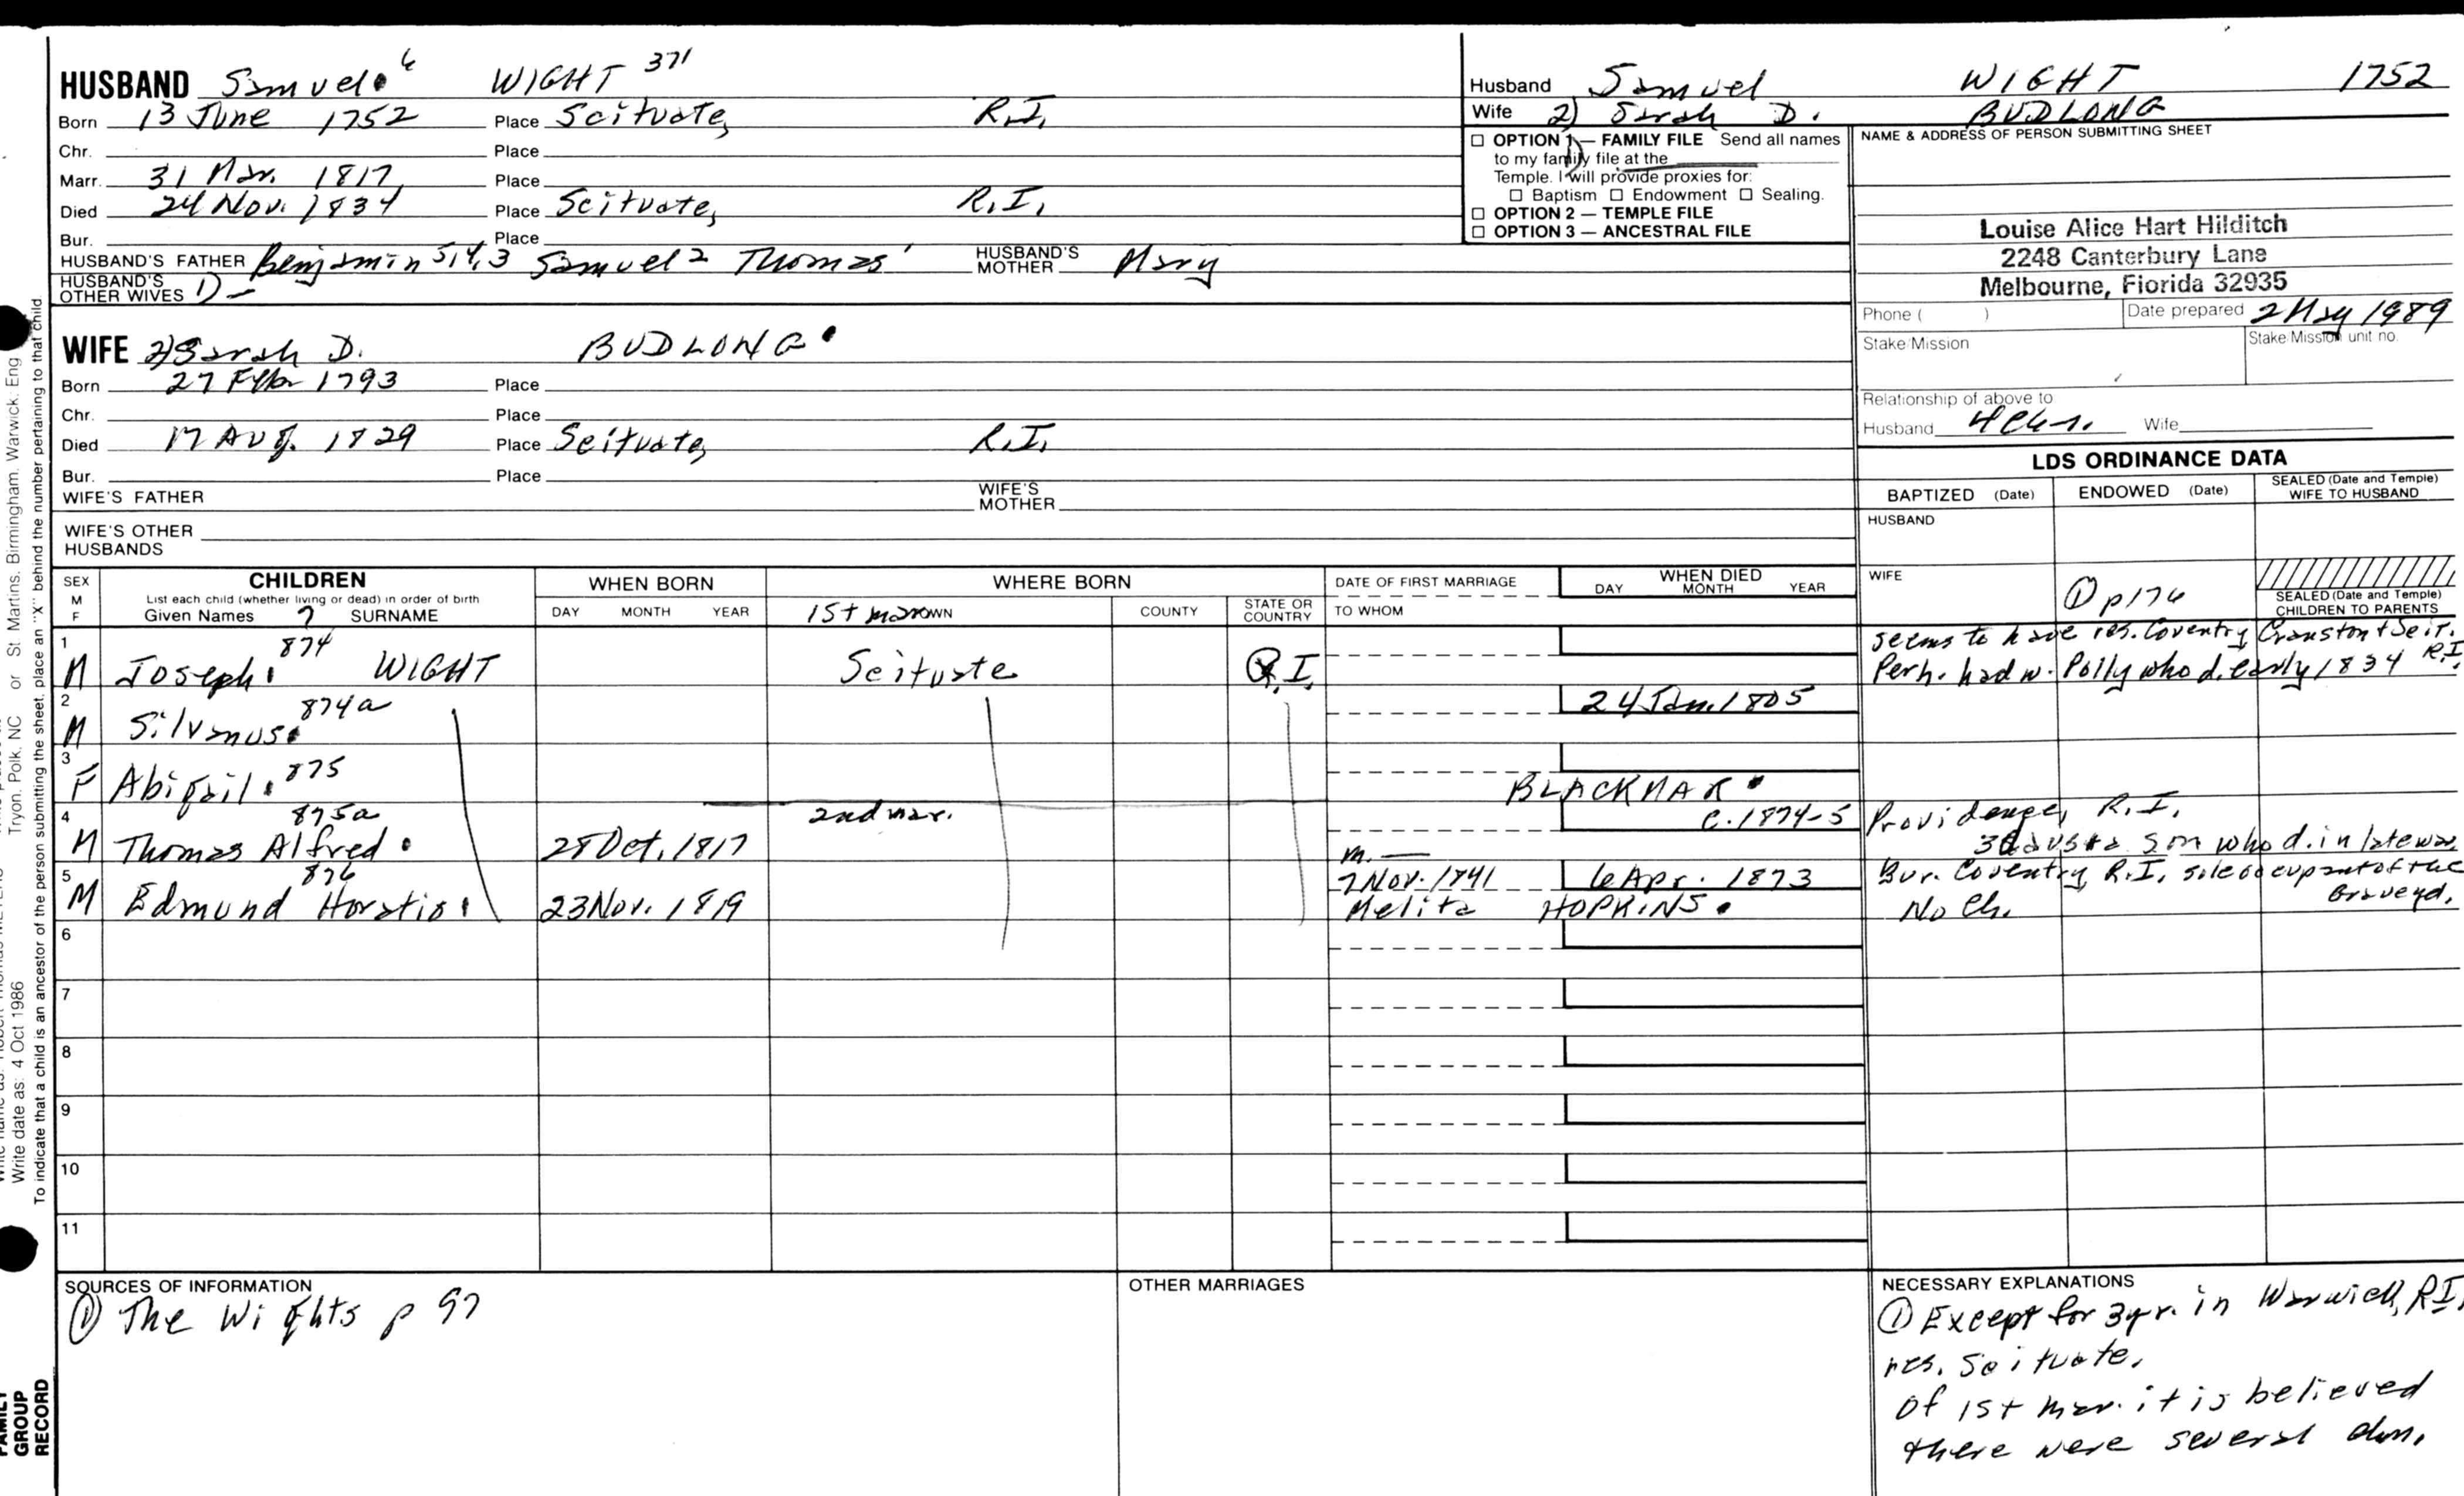 HUSBAND Samuel 6 WIGHT 371
Born 13 June 1752 Place Scituate, R.I.
Chr. Place
Marr. 31 Mar. 1817 Place
Died 24 Nov. 1834 Place Scituate, R.I.
Bur. Place
HUSBAND'S FATHER Benjamin 5,4,3 Samuel 2 Thomas 1 HUSBAND'S MOTHER Mary
HUSBAND'S OTHER WIVES 1) —
WIFE 2) Sarah D. BUDLONG
Born 27 1793 Place
Chr. Place
Died 17 Aug. 1829 Place Scituate, R.I.
Bur. Place
WIFE'S FATHER WIFE'S MOTHER
WIFE'S OTHER HUSBANDS
Husband Samuel WIGHT 1752
Wife 2) Sarah D. BUDLONG
OPTION 1 — FAMILY FILE Send all names
to my family file at the
Temple. I will provide proxies for:
Baptism Endowment Sealing.
OPTION 2 — TEMPLE FILE
OPTION 3 — ANCESTRAL FILE
NAME & ADDRESS OF PERSON SUBMITTING SHEET
Louise Alice Hart Hilditch
2248 Canterbury Lane
Melbourne, Florida 32935
Phone ( ) Date prepared 2 May 1989
Stake/Mission Stake/Mission unit no.
Relationship of above to
Husband Wife
LDS ORDINANCE DATA
BAPTIZED (Date) ENDOWED (Date) SEALED (Date and Temple) WIFE TO HUSBAND
HUSBAND
WIFE ① p176
SEALED (Date and Temple) CHILDREN TO PARENTS
SEX M F CHILDREN WHEN BORN WHERE BORN DATE OF FIRST MARRIAGE WHEN DIED
List each child (whether living or dead) in order of birth
Given Names ? SURNAME DAY MONTH YEAR 1st mar. TOWN COUNTY STATE OR COUNTRY TO WHOM DAY MONTH YEAR
1 M Joseph 874 WIGHT Scituate R.I. seems to have res. Coventry, Cranston + Scit. R.I.
Perh. had w. Polly who d. early 1834
2 M Silvanus 874a 24 Jan. 1805
3 F Abigail 875 BLACKMAR
4 M Thomas Alfred 875a 28 Oct. 1817 2nd mar. m. — c. 1874-5 Providence, R.I.
3 daus + a son who d. in late war
5 M Edmund Horatio 876 23 Nov. 1819 7 Nov. 1841 Melita HOPKINS 6 Apr. 1873 Bur. Coventry, R.I. sole occupant of the
Graveyd.
No Ch.
6
7
8
9
10
11
SOURCES OF INFORMATION
① The Wights p 97
OTHER MARRIAGES
NECESSARY EXPLANATIONS
① Except for 3 yr. in Warwick, RI,
res. Scituate.
Of 1st mar. it is believed
there were several chn.
St Martins, Birmingham, Warwick, Eng
Tryon, Polk, NC or
Write date as: 4 Oct 1986
To indicate that a child is an ancestor of the person submitting the sheet, place an "X" behind the number pertaining to that child.
FAMILY
GROUP
RECORD